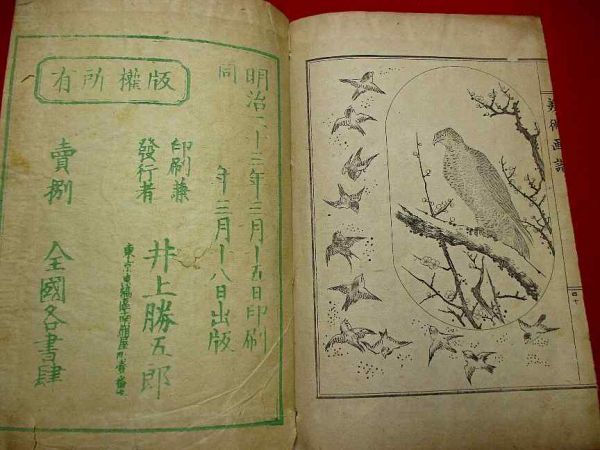 版權所有
明治二十三年三月十五日印刷
同 年三月十八日出版
印刷兼
發行者
井上勝五郎
賣捌
全國各書肆
美術画譜